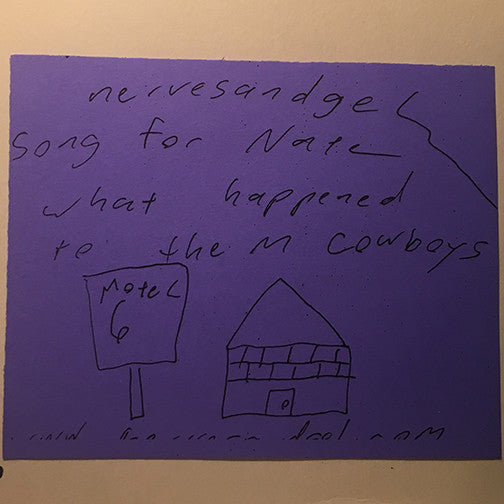 nervesandgel
song for Nate
what happened
to the M cowboys
Motel
6